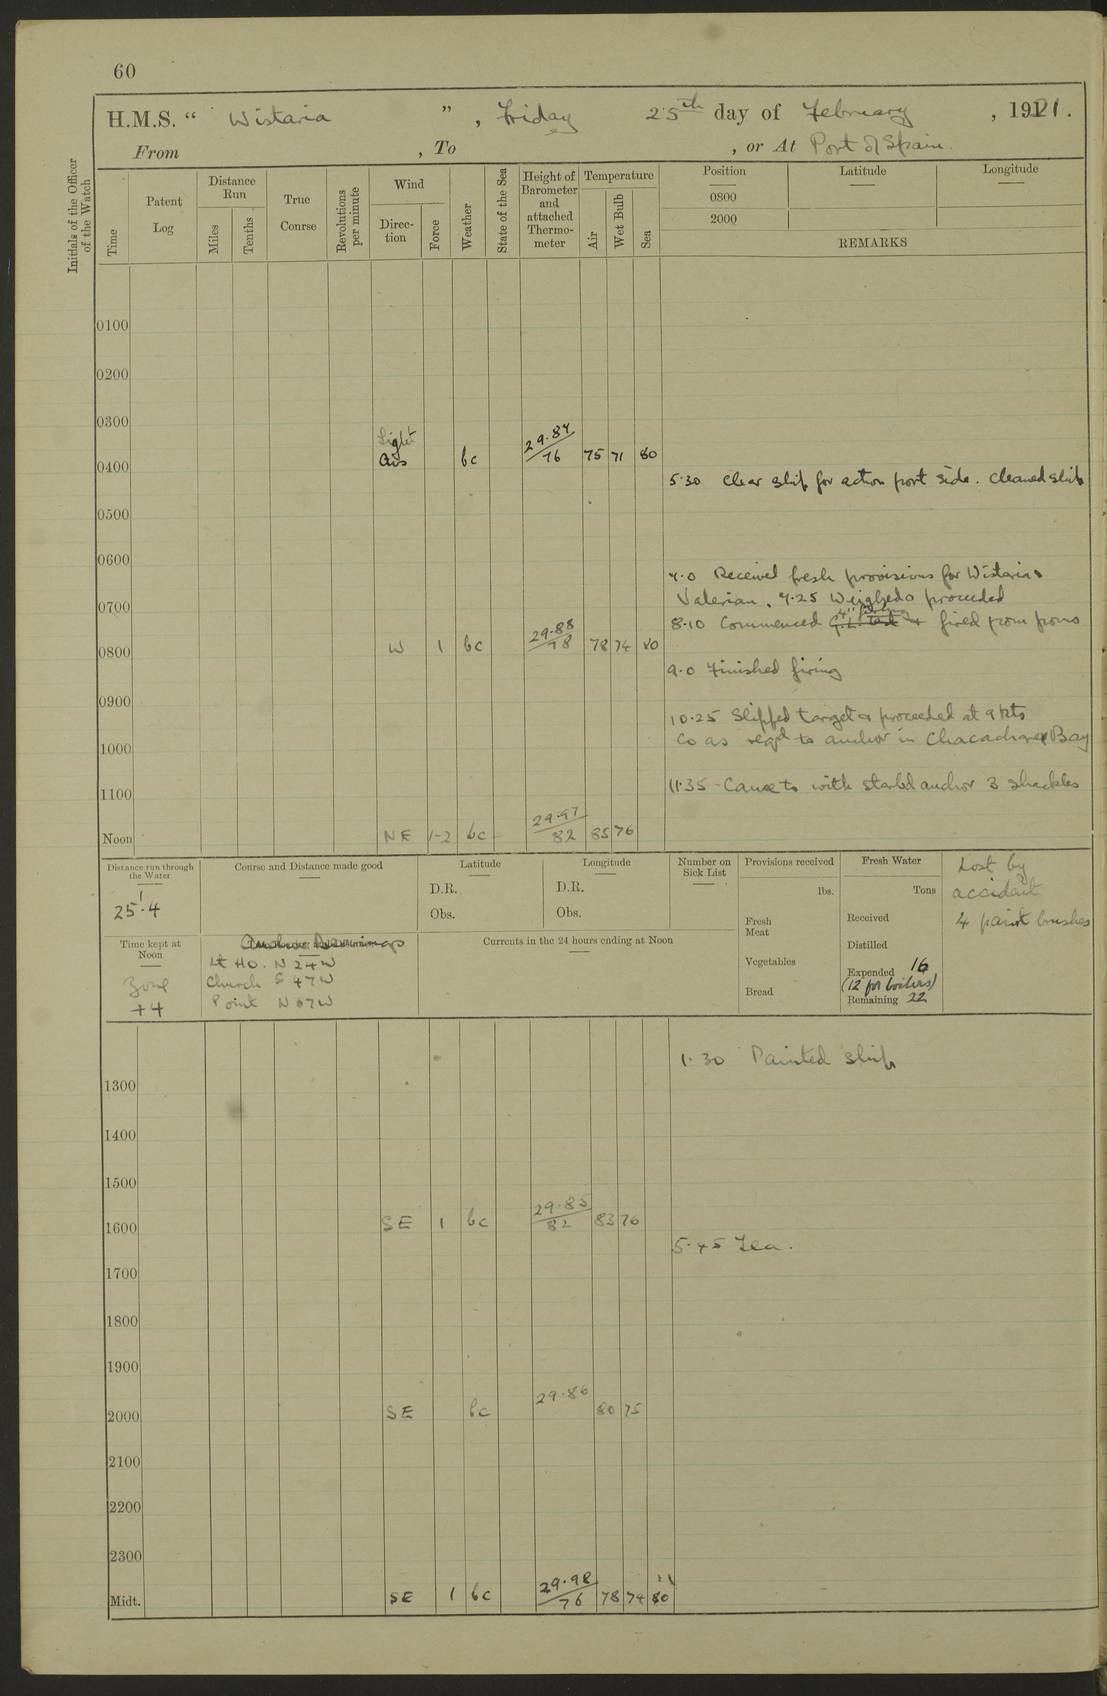 60
H.M.S. “ Wistaria ” , Friday 25th day of February , 1921.
From , To , or At Port of Spain.
Initials of the Officer of the Watch
Time
Patent Log
Distance Run
Miles
Tenths
True Course
Revolutions per minute
Wind
Direction
Force
Weather
State of the Sea
Height of Barometer and attached Thermometer
Temperature
Air
Wet Bulb
Sea
Position Latitude Longitude
0800
2000
REMARKS
0100
0200
0300
0400 Light airs bc 29.84/76 75 71 80
5.30 Clear ship for action port side. Cleaned ship
0500
0600
7.0 Received fresh provisions for Wistaria &
Valerian. 7.25 Weighed & proceeded
0700
8.10 Commenced fired from
0800 W 1 bc 29.88/78 78 74 80
9.0 Finished firing
0900
10.25 Slipped target & proceeded at 9 kts
Co as reqd to anchor in Chacachacare Bay
1000
11.35 Came to with starbd anchor 3 shackles
1100
Noon NE 1-2 bc 29.97/82 85 76
Distance run through the Water
25'.4
Course and Distance made good
Latitude
D.R.
Obs.
Longitude
D.R.
Obs.
Number on Sick List
Provisions received
lbs.
Fresh Meat
Vegetables
Bread
Fresh Water
Tons
Received
Distilled
Expended 16
(12 for boilers)
Remaining 22
Lost by
accident
4 paint brushes
Time kept at Noon
Zone
+4
Anchor Bearings
Lt Ho. N 24 W
Church S 47 W
Point N 67 W
Currents in the 24 hours ending at Noon
1.30 Painted ship
1300
1400
1500
1600 SE 1 bc 29.85/82 83 76
5.45 Tea.
1700
1800
1900
2000 SE bc 29.86 80 75
2100
2200
2300
Midt. SE 1 bc 29.98/76 78 74 80